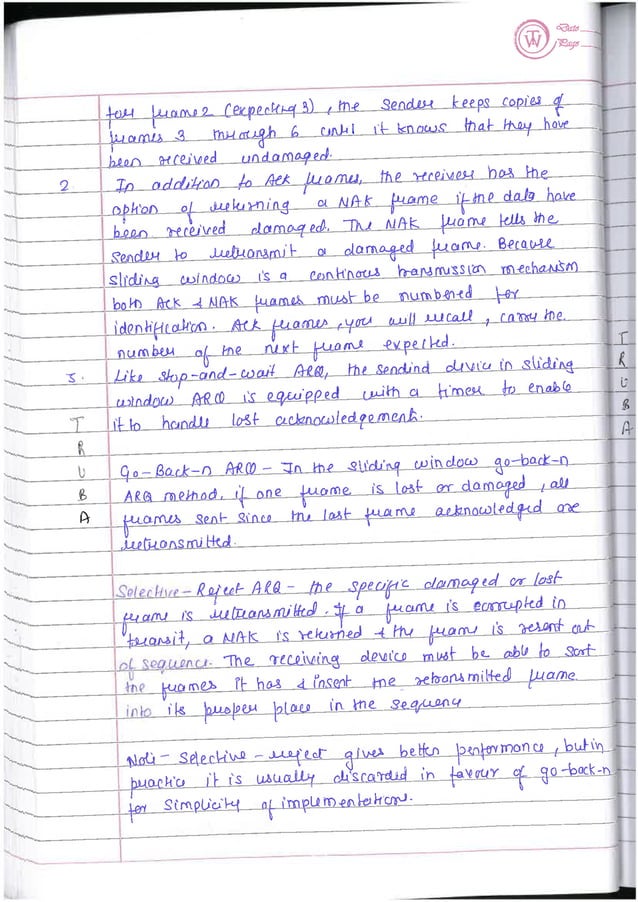 TW Date
Page
for frame 2 (expecting 3), the sender keeps copies of
frames 3 through 6 until it knows that they have
been received undamaged.
2 In addition to Ack frames, the receiver has the
option of returning a NAK frame if the data have
been received damaged. The NAK frame tells the
sender to retransmit a damaged frame. Because
sliding window is a continous transmission mechanism
both Ack & NAK frames must be numbered for
identification. Ack frames, you will recall, carry the
number of the next frame expected.
3. Like stop-and-wait ARQ, the sendind device in sliding
window ARQ is equipped with a timer to enable
it to handle lost acknowledgement.
Go-Back-n ARQ - In the sliding window go-back-n
ARQ method, if one frame is lost or damaged, all
frames sent since the last frame acknowledged are
retransmitted.
Selective-Reject ARQ - the specific damaged or lost
frame is retransmitted. If a frame is corrupted in
transit, a NAK is returned & the frame is resent out
of sequence. The receiving device must be able to sort
the frames it has & insert the retransmitted frame
into its proper place in the sequence
Note - Selective-reject gives better performance, but in
practice it is usually discarded in favour of go-back-n
for simplicity of implementation.
T
R
U
B
A
T
R
U
B
A